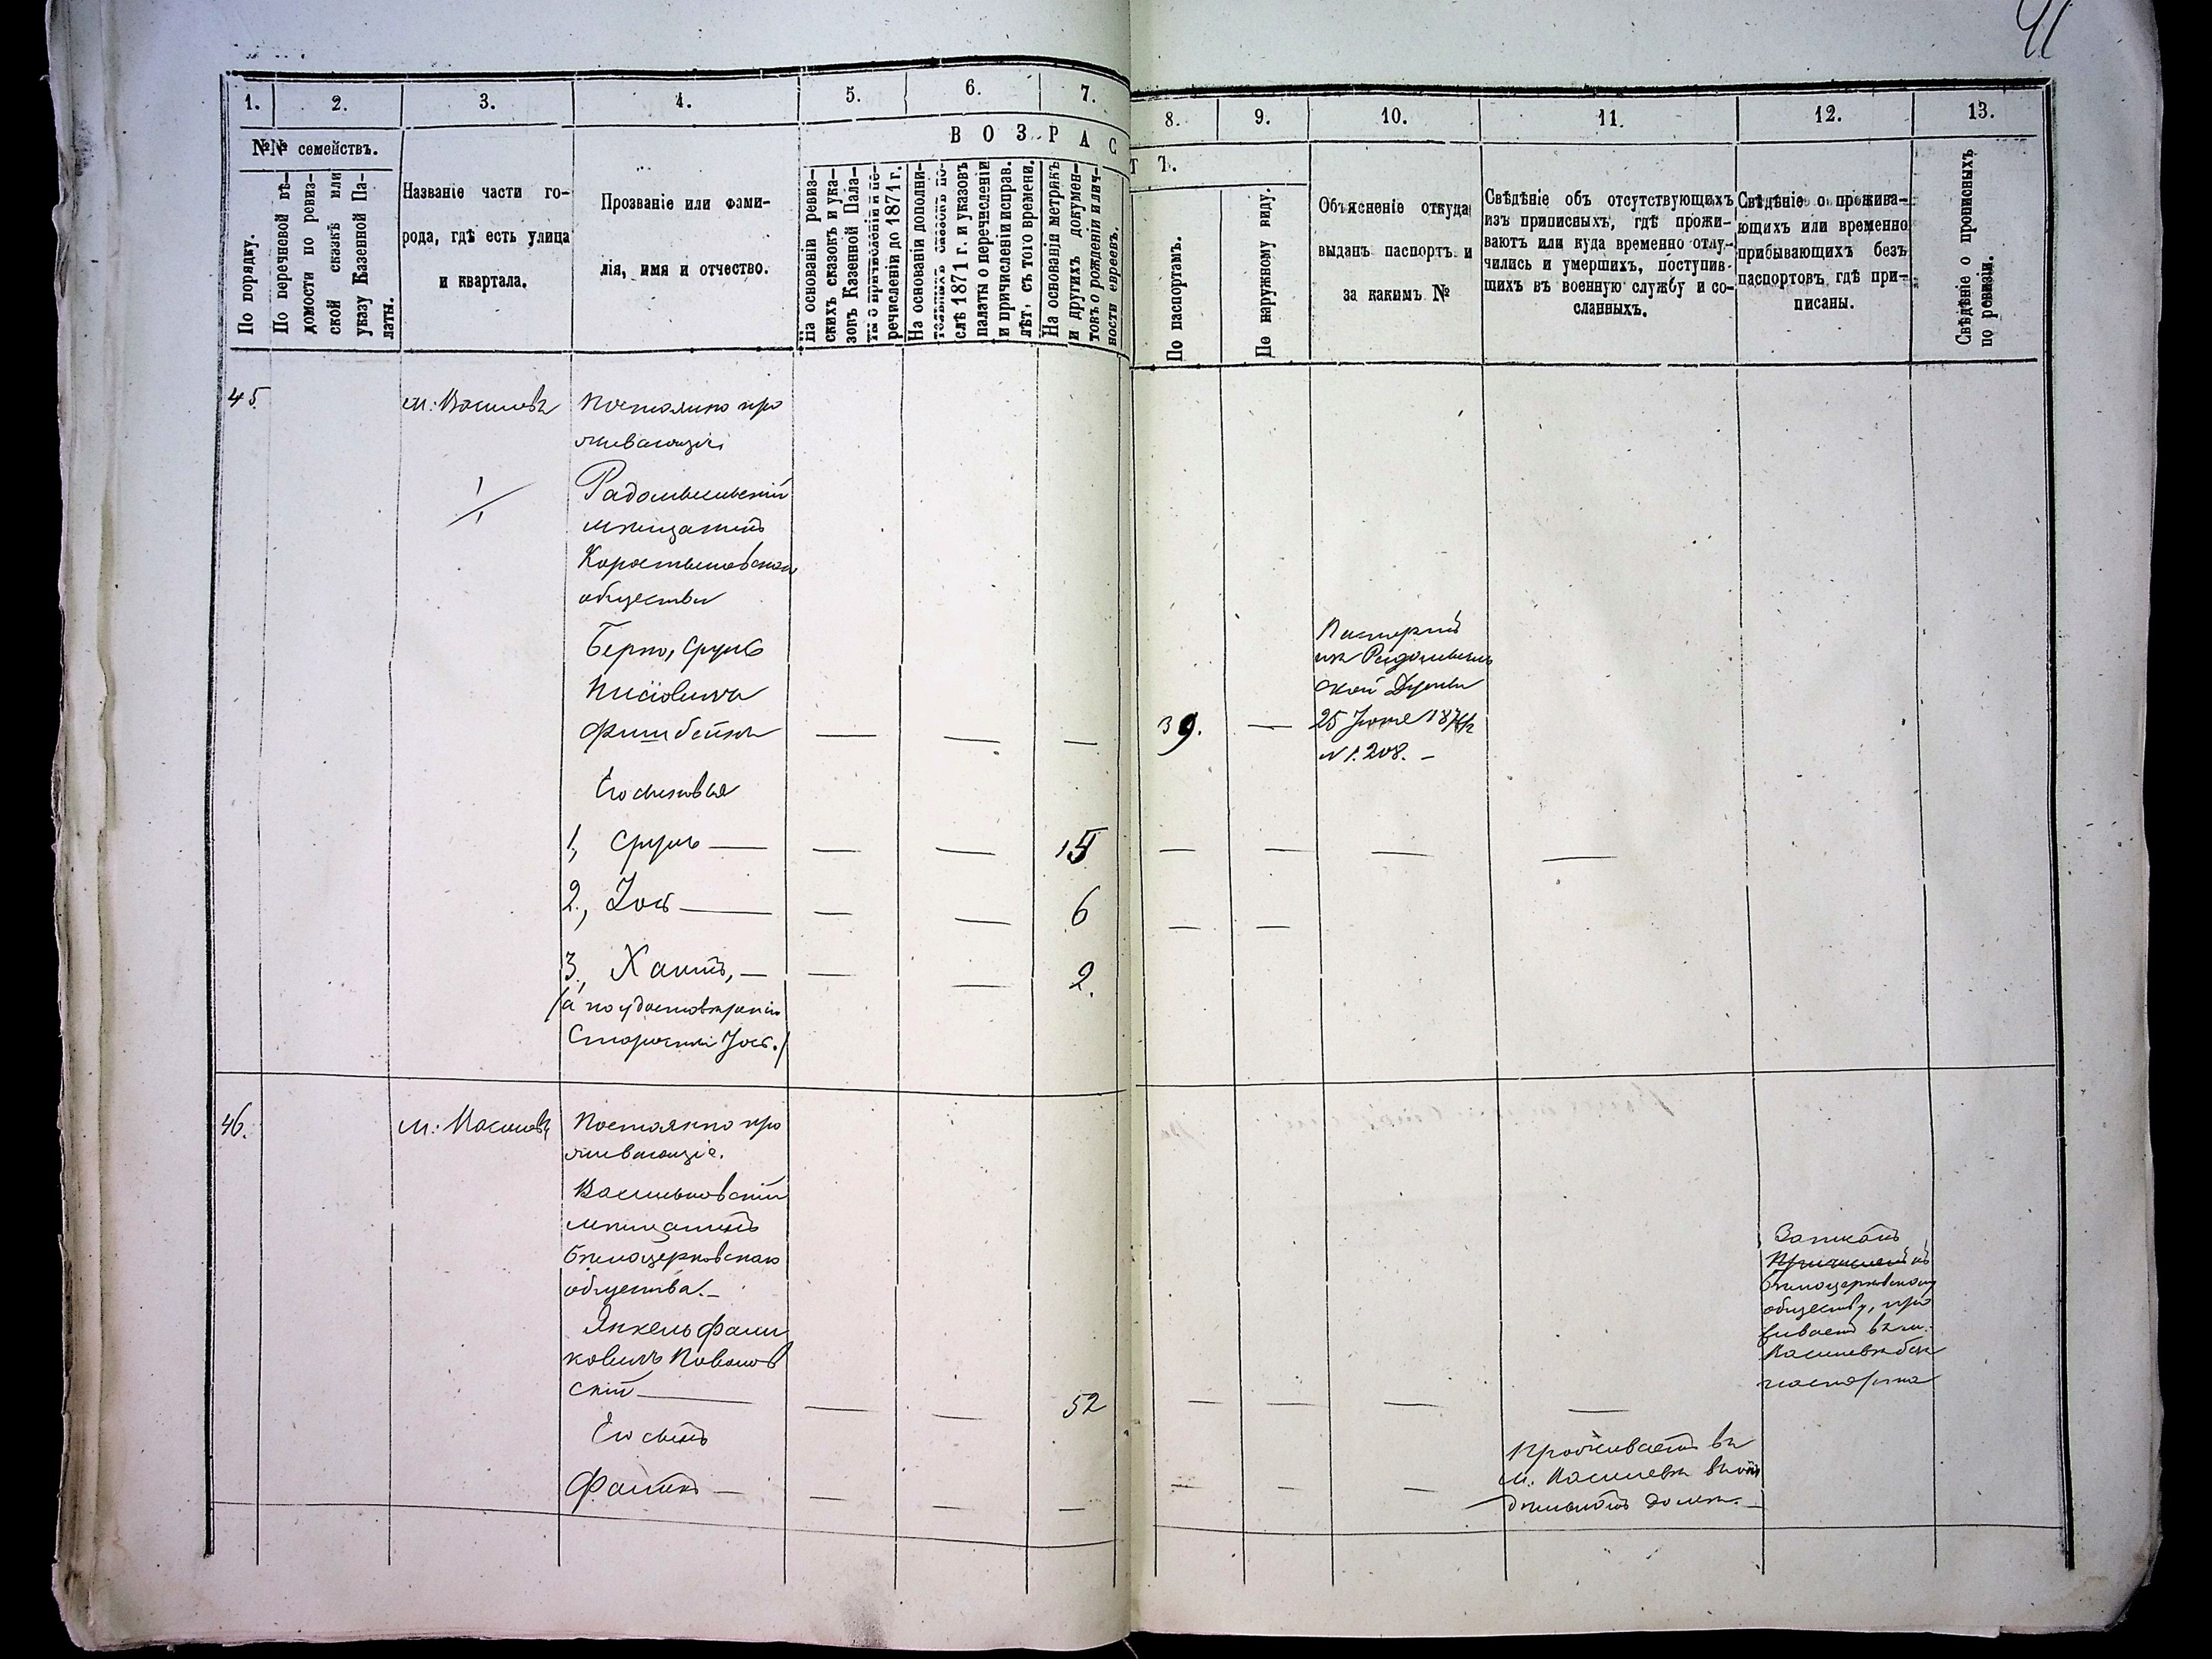 41
1.
2.
3.
4.
5.
6.
7.
8.
9.
10.
11.
12.
13.
№№ семействъ.
По порядку.
По перечневой вѣ-
домости по ревиз-
ской сказкѣ или
указу Казенной Па-
латы.
Названіе части го-
рода, гдѣ есть улица
и квартала.
Прозваніе или фами-
лія, имя и отчество.
ВОЗРАС
ТЪ.
На основаніи ревиз-
скихъ сказокъ и ука-
зовъ Казенной Пала-
ты о причисленіи и пе-
речисленіи до 1871 г.
На основаніи дополни-
тельныхъ сказокъ по-
слѣ 1871 г. и указовъ
палаты о перечисленіи
и причисленіи исправ.
лѣт, съ того времени.
На основаніи метрикъ
и другихъ докумен-
товъ о рожденіи и лич-
ности евреевъ.
По паспортамъ.
По наружному виду.
Объясненіе откуда
выданъ паспортъ и
за какимъ №
Свѣдѣніе объ отсутствующихъ
изъ приписныхъ, гдѣ прожи-
ваютъ или куда временно отлу-
чились и умершихъ, поступив-
шихъ въ военную службу и со-
сланныхъ.
Свѣдѣніе о прожива-
ющихъ или временно
прибывающихъ безъ
паспортовъ гдѣ при-
писаны.
Свѣдѣніе о прописныхъ
по ревизіи.
45.
Постоянно про
живающіе
Радомысльскій
мѣщанинъ
Коростышовскаго
общества
Берко, Сруль
Фишбейнъ — — —
39. —
Паспортъ
изъ Радомысль
ской Думы
25 Іюня
№ 1.208. —
Его сыновья
1, Сруль — — — 15 — — — —
2, Іось — — — 6 — —
3, Хаимъ, — — — 2.
/а по удостовѣренію
Іось./
46.
Постоянно про
живающіе.
Васильковскій
мѣщанинъ
бѣлоцерковскаго
общества. —
Янкель Фаин
ковичъ
скій — — — 52 — — — —
Записанъ
Причисленъ къ
бѣлоцерковскому
обществу, про
живаетъ въ м.
безъ
паспорта
Его сынъ
— — — — — —
Проживаетъ въ
м.
домѣ. —